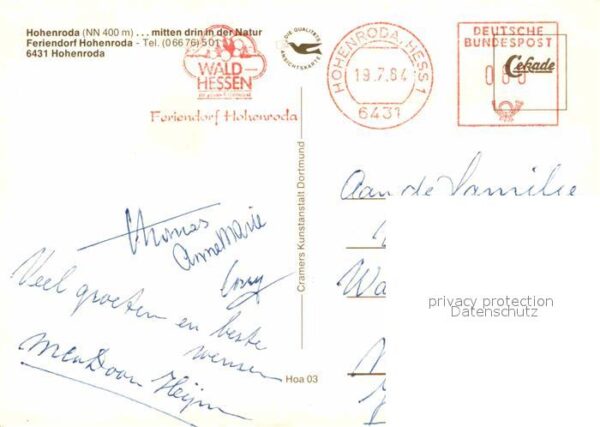 Hohenroda (NN 400 m) ... mitten drin in der Natur
Feriendorf Hohenroda - Tel. (0 66 76) 5 01
6431 Hohenroda
WALD-
HESSEN
Feriendorf Hohenroda
DIE QUALITÄTS
ANSICHTSKARTE
HOHENRODA, HESS 1
19.7.84
6431
DEUTSCHE
BUNDESPOST
Cekade
Cramers Kunstanstalt Dortmund
Hoa 03
Thomas
AnneMarie
Veel groeten en beste
wensen
Aan de Familie
Wa
privacy protection
Datenschutz